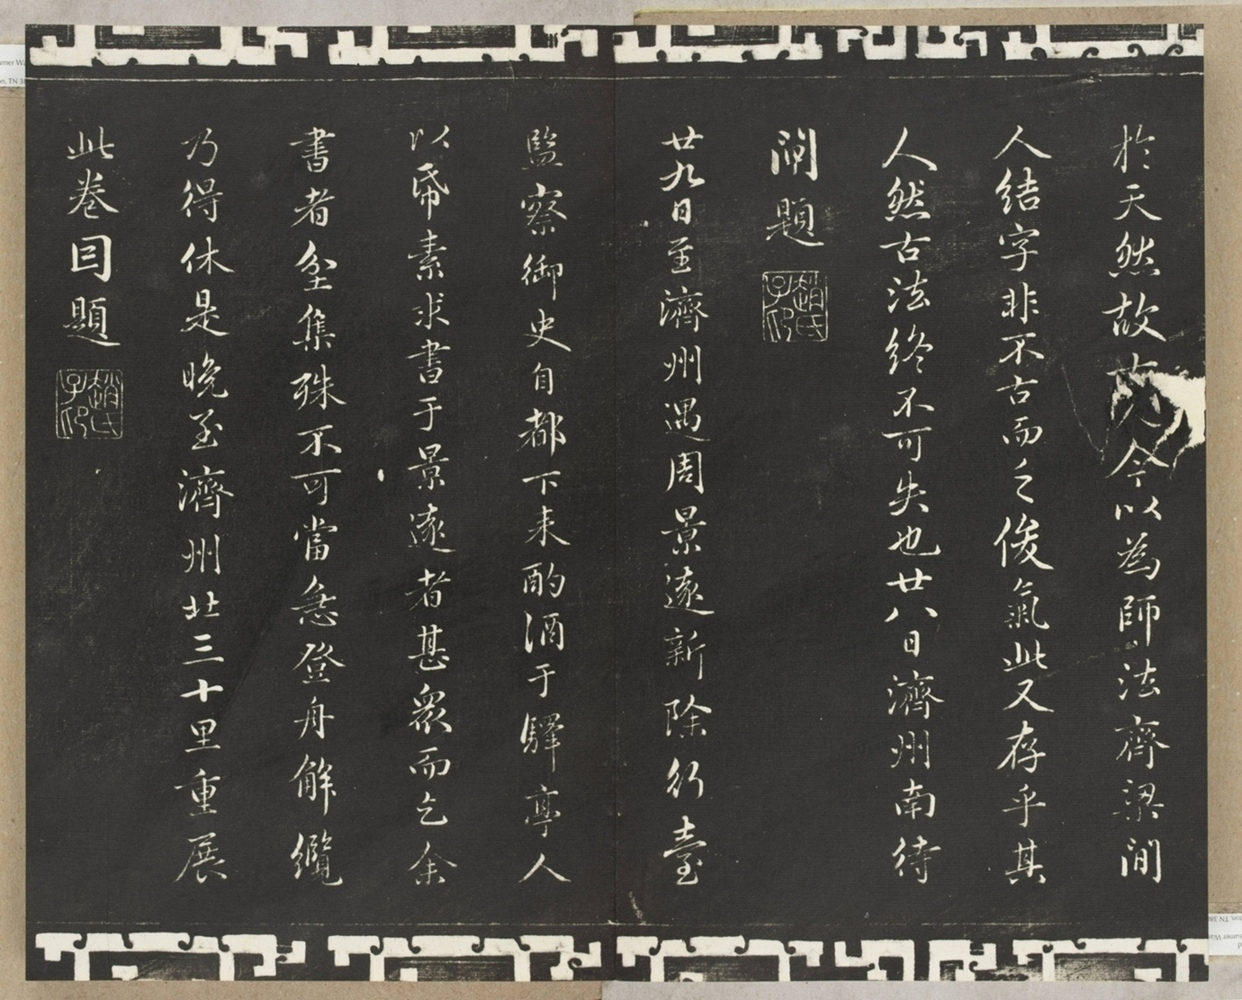 於天然故古今以為師法齊梁間
人結字非不古而乏俊氣此又存乎其
人然古法終不可失也廿八日濟州南待
閘題
趙氏子昂
廿九日至濟州遇周景遠新除行臺
監察御史自都下来酌酒于驛亭人
以帋素求書于景遠者甚衆而乞余
書者坌集殊不可當急登舟解纜
乃得休是晚至濟州北三十里重展
此卷因題
趙氏子昂